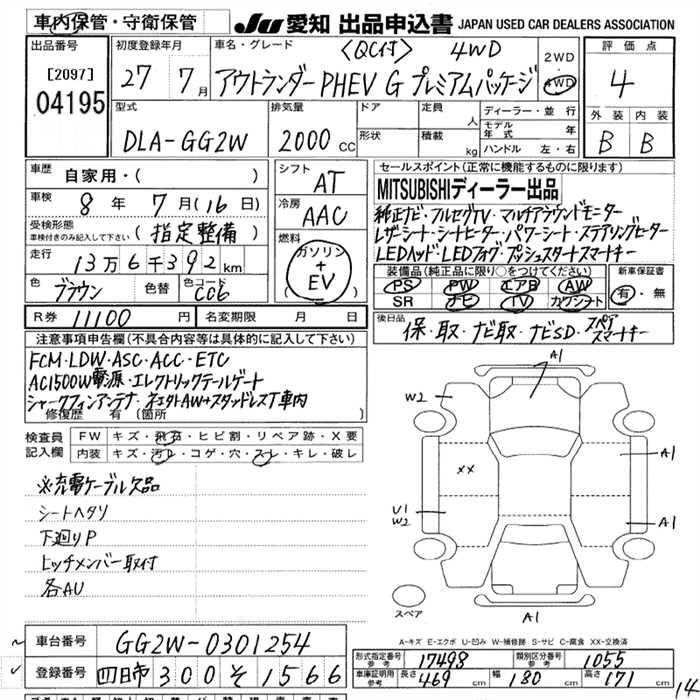 車内保管・守衛保管
JU 愛知 出品申込書 JAPAN USED CAR DEALERS ASSOCIATION
出品番号 [2097] 04195
初度登録年月 27 7月
車名・グレード 〈QC付〉 4WD
アウトランダーPHEV G プレミアムパッケージ
2WD・4WD
評価点 4
外装 内装
B B
型式 DLA-GG2W
排気量 2000 CC
ドア 形状
定員 人
積載 kg
ディーラー・並行
モデル年式 年
ハンドル 左・右
車歴 自家用・( )
車検 8年 7月(16日)
受検形態 車検付きのみ記入して下さい (指定整備)
走行 13万6千392km
色 ブラウン 色コード C06
シフト AT
冷房 AAC
燃料 ガソリン+EV ( )
R券 11100円 名変期限 月 日
セールスポイント(正常に機能するものに限ります)
MITSUBISHIディーラー出品
純正ナビ・フルセグTV・マルチアラウンドモニター
レザーシート・シートヒーター・パワーシート・ステアリングヒーター
LEDヘッド・LEDフォグ・プッシュスタートスマートキー
装備品(純正品に限り○をつけてください)
PS PW エアB AW
SR ナビ TV カワシート
新車保証書 有・無
後日品 保・取・ナビ取・ナビSD・スペアスマートキー
注意事項申告欄(不具合内容等は具体的に記入して下さい)
FCM・LDW・ASC・ACC・ETC
AC1500W電源・エレクトリックテールゲート
シャークフィンアンテナ・社外AW+スタッドレスT車内
修復歴 有(箇所 )
検査員記入欄
FW キズ・飛石・ヒビ割・リペア跡・X要
内装 キズ・汚レ・コゲ・穴・スレ・キレ・破レ
※充電ケーブル欠品
シートヘタリ
下廻りP
ヒッチメンバー取付
各AU
A1
W2
A1
XX
U1
W2
A1
A1
スペア
A-キズ E-エクボ U-凹み W-補修跡 S-サビ C-腐食 XX-交換済
車台番号 GG2W-0301254
登録番号 四日市 300 そ 1566
形式指定番号 参考 17498 類別区分番号 参考 1055
車庫証明用 参考 長さ 469 cm 幅 180 cm 高さ 171 cm
14